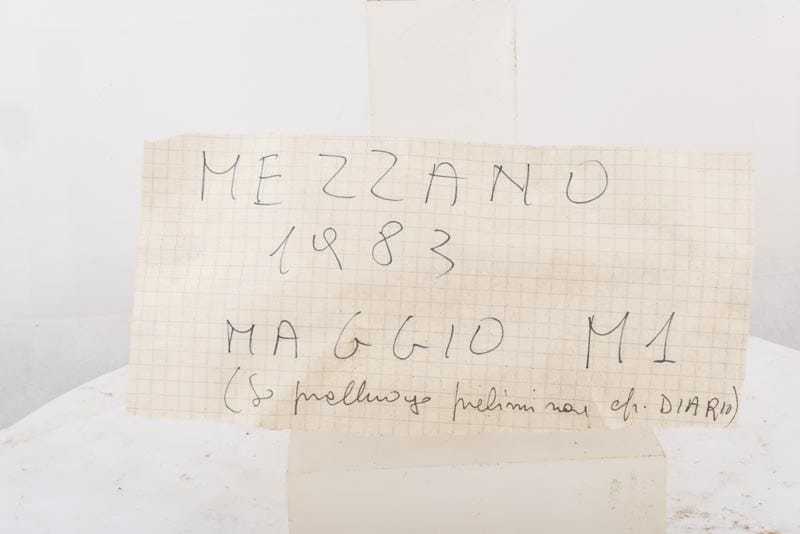 MEZZANO
1983
MAGGIO M1
(Sopralluogo preliminare cfr. DIARIO)